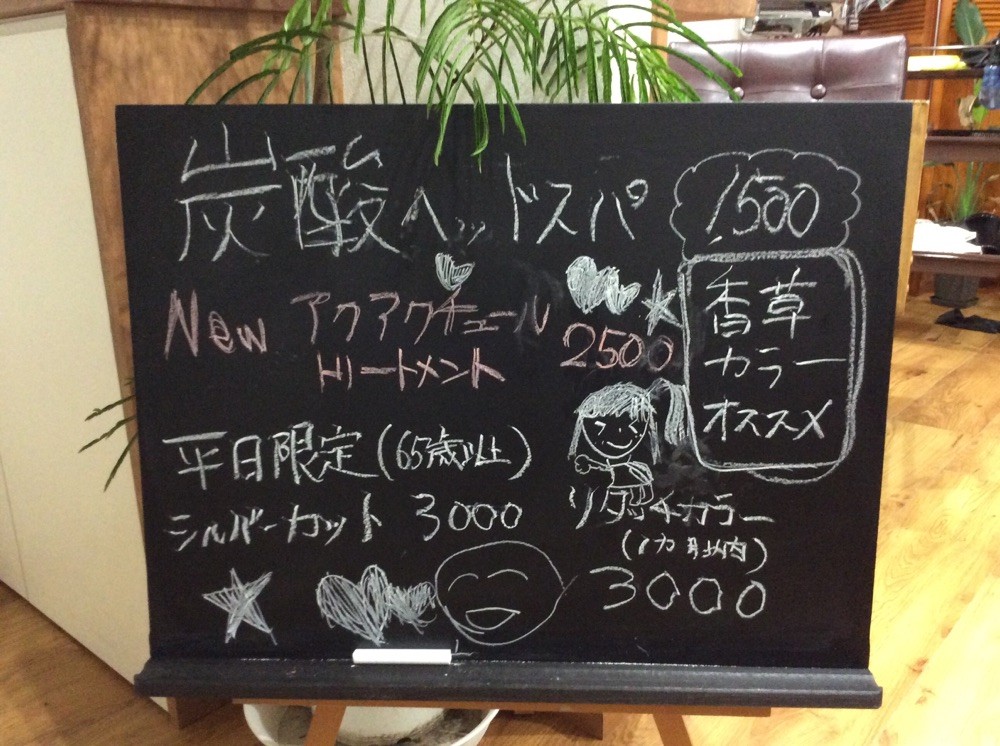 炭酸ヘッドスパ 1,500
New アクアクチュール
トリートメント 2500
香草
カラー
オススメ
平日限定(65歳以上)
シルバーカット 3000
リタッチカラー
(1カ月以内)
3000